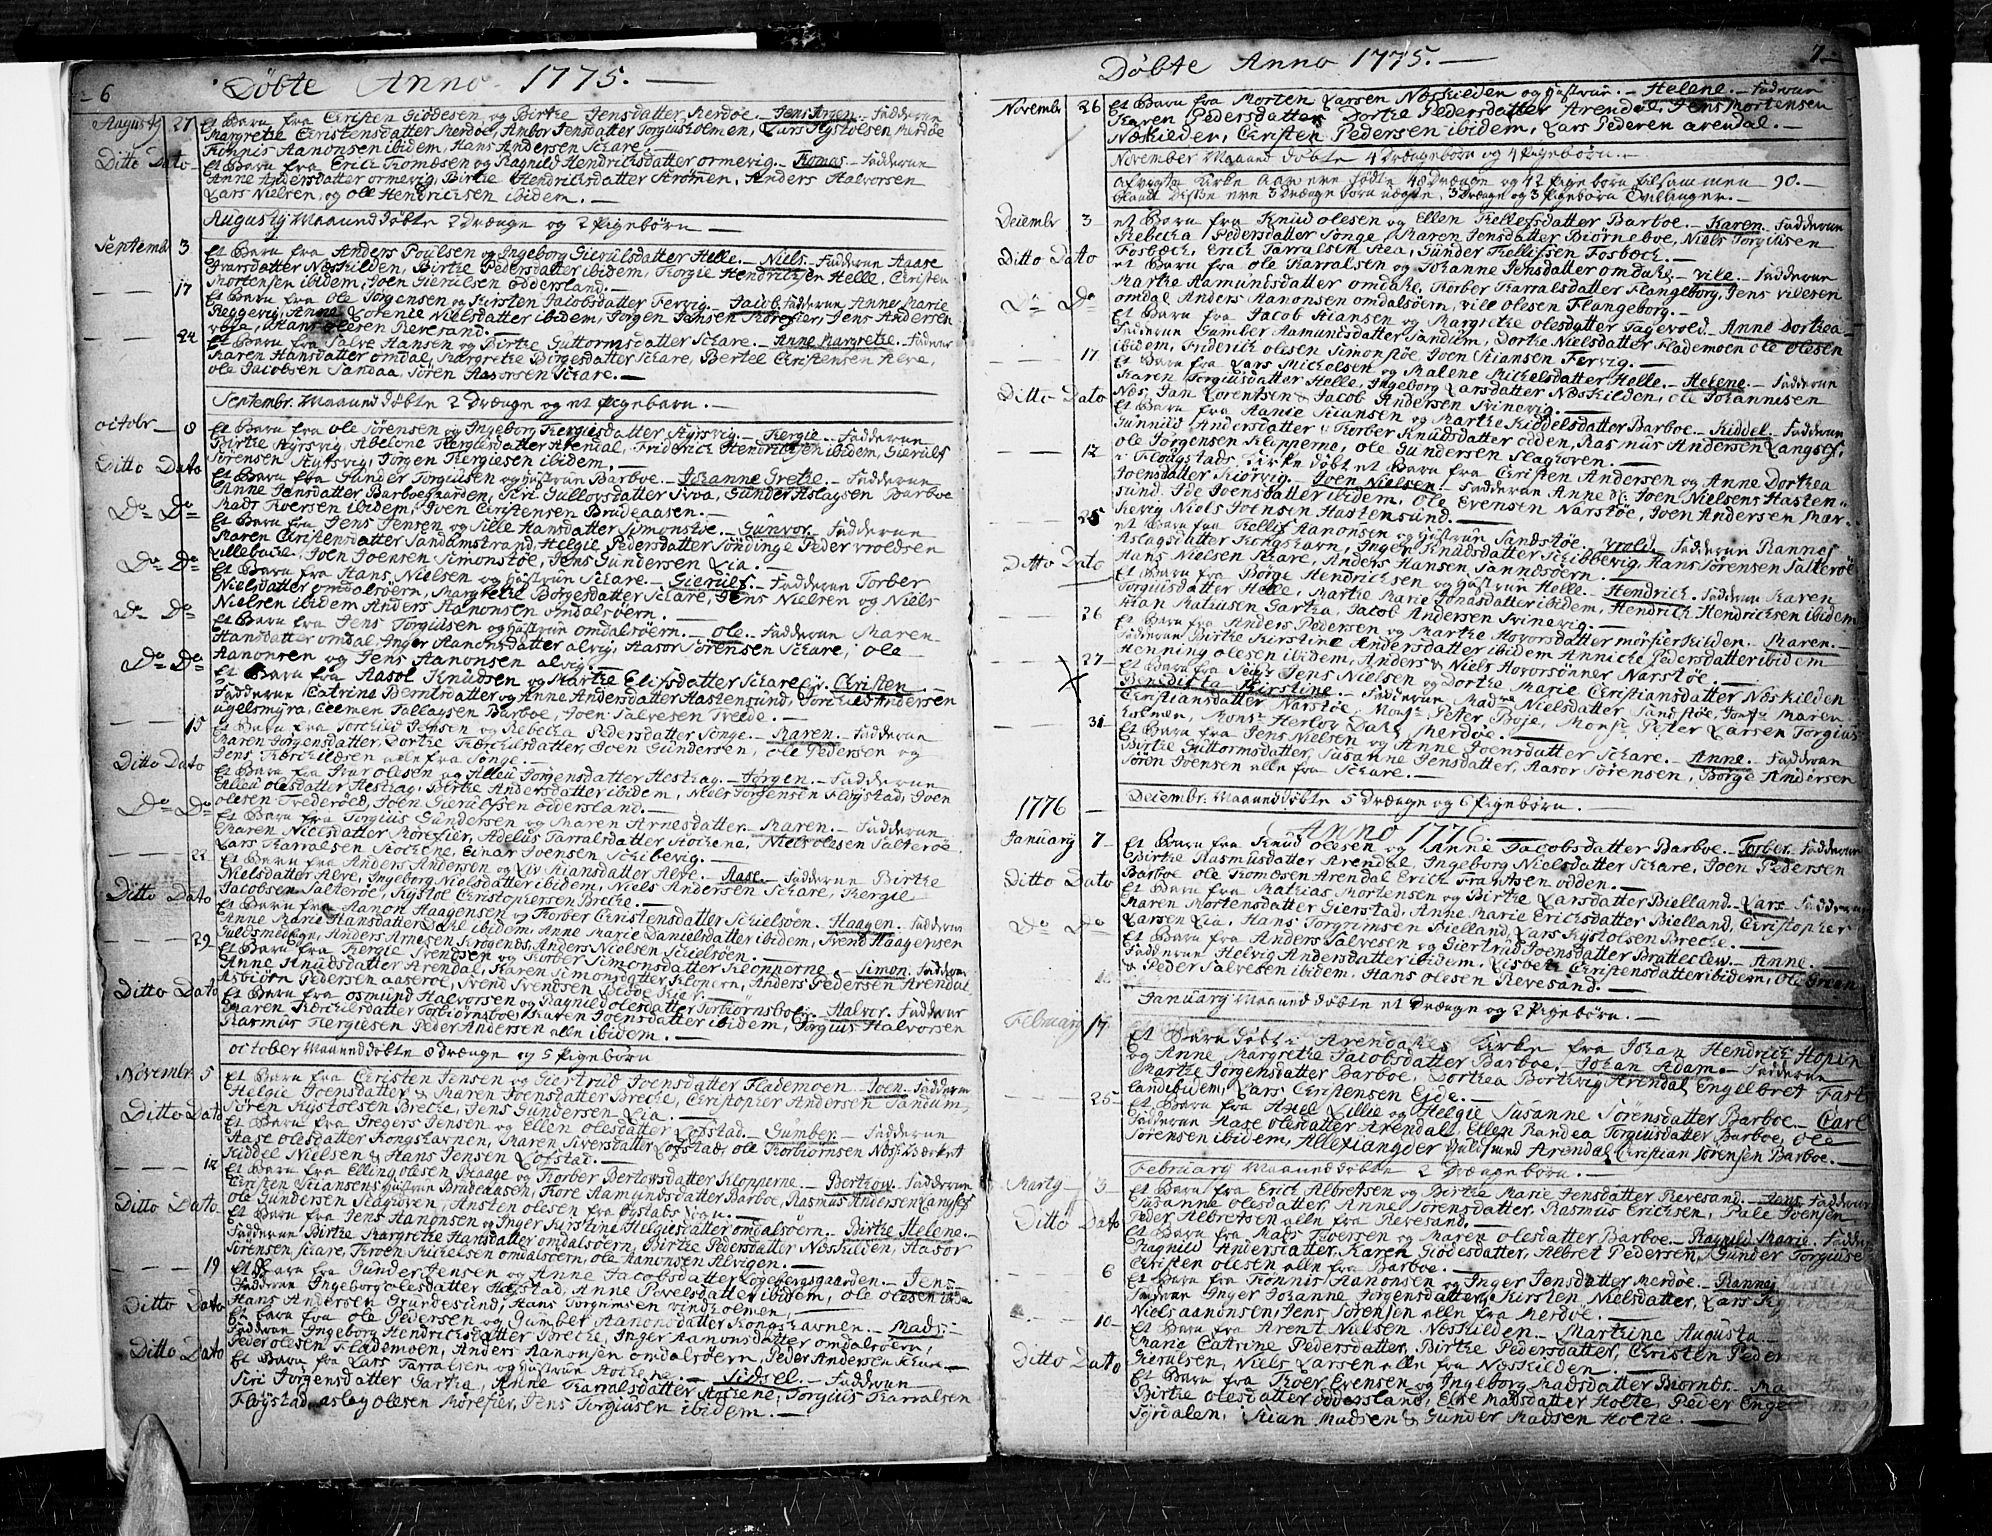 6
Döbte Anno 1775.
Augusty 27 Et Barn fra Christen Giödesen, og Birthe Jensdatter, Merdöe. Jens Jörgen. Fadderne
Margrethe Christensdatter Merdöe, Anbor Jensdatter Torgiusholmen, Lars Kystolsen Merdöe
Tönnis Aanonsen ibidem, Hans Andersen Schare.
Ditto Dato Et Barn fra Erich Thomösen og Ragnild Hendrichsdatter ormevig. Thomas. Fadderne
Anne Andersdatter ormevig, Birthe Hendrichsdatter Strömen, Anders Halvorsen
Lars Nielsen, og ole Hendrichsen ibidem.
Augusty Maaned döbte 2 Drænge og 2 Pigebörn.
Septembr 3 Et Barn fra Anders Poulsen og Ingeborg Gierulsdatter Helle. Niels. Fadderne Aase
datter Næskilden, Birthe Pedersdatter ibidem, Torgie Hendrichsen Helle, Christen
Mortensen ibidem, Joen Gierulsen öddersland.
17 Et Barn fra Ole Jörgensen og Kirsten Jacobsdatter Fervig. Jacob. Fadderne Anne Marie
Reggevig, Anne Lorence Nielsdatter ibidem, Jörgen Jansen Mörefier, Jens Andersen
Hans olesen Revesand.
24 Et Barn fra Salve Hansen og Birthe Guttormsdatter Schare. Anne Margrethe. Fadderne
Karen Hansdatter omdal, Margrethe Börgesdatter Schare, Bertel Christensen Alve,
ole Jacobsen Sandaa, Sören Aasorsen Schare.
Septembr. Maaned döbte 2 Drænge og et Pigebarn.
octobr 8 Et Barn fra ole Sörensen og Ingeborg Thergiesdatter Styrsvig. Thergie. Fadderne
Birthe Styrsvig, Abelone Thergiesdatter Arendal, Friderich Hendrichsen ibidem, Gierulf
Sörensen Styrsvig, Jörgen Thergiesen ibidem.
Ditto Dato Et Barn fra Gunder Torgiusen og Hustrue Barboe. Johanne Grethe. Fadderne
Anne Jensdatter Barboegaarden, Siri Gullovsdatter Froa, Gunder Aslaysen Barboe
Mads Thorsen ibidem, Joen Christensen Brudeaasen.
Do Do Et Barn fra Jens Jensen og Sille Hansdatter Simonstöe. Gunvor. Fadderne
Maren Christensdatter Sandumstrand, Helgie Pedersdatter Söndinge Peder vroldsen
villebuse, Joen Joensen Simonstöe, Jens Gundersen Lia.
Do Do Et Barn fra Hans Nielsen og Hustrue Schare. Gierulf. Fadderne Torber
Nielsdatter omdalsöern, Margrethe Börgesdatter Schare, Jens Nielsen og Niels
Nielsen ibidem Anders Aanonsen omdalsöern.
Do Do Et Barn fra Jens Torgiusen og Hustrue omdalsöern. Ole. Fadderne Maren
Hansdatter omdal, Inger Aanonsdatter alvig, Aasor Sörensen Schare, ole
Aanonsen og Jens Aanonsen alvig.
Do Do Et Barn fra Aasol Knudsen og Marthe Elisdatter Schare. Christen.
Fadderne Catrine Berntsdatter og Anne Andersdatter Hastensund, Torchild Andersen
ugelsmyra, Clemen Tallaysen Barboe, Joen Salvesen Trelde.
15 Et Barn fra Torchild Jensen og Rebecha Pedersdatter Songe. Maren. Fadderne
Karen Jörgensdatter, Dorthe Thorchilsdatter, Joen Gundersen, ole Pedersen og
Jens Thorchildsen alle fra Songe.
Ditto Dato Et Barn fra Ivar olesen og Alleu Jörgensdatter Aeshag. Jörgen. Fadderne
Alleu olesdatter Aeshag, Birthe Andersdatter ibidem, Niels Jörgensen Flöystad, Joen
olesen Trederöed, Joen Gierulfsen öddersland.
Do Do Et Barn fra Torgius Gundersen og Maren Arnesdatter. Maren. Fadderne
Maren Nielsdatter Mörefier, Adelus Tarralsdatter Stochene, Niels olesen Salteröe
Lars Tharralsen Stochene, Einar Joensen Schibevig.
22 Et Barn fra Anders Andersen og Liv Kiansdatter Alve. Aase. Fadderne Birthe
Nielsdatter Alve, Ingeborg Nielsdatter ibidem, Niels Andersen Schare, Thergie
Jacobsen Salteröe, Kystol Christophersen Breche.
Ditto Dato Et Barn fra Aanon Haagensen og Thorber Christensdatter Schielsöen. Haagen. Fadderne
Anne Marie Hansdatter Dahl ibidem, Anne Marie Danielsdatter ibidem, Svend Haagensen
Guldsmedeng, Anders Arnesen Krogende, Anders Nielsen Schielsöen.
29 Et Barn fra Thergie Svendsen og Thorber Simonsdatter Klopperne. Simon. Fadderne
Anne Knudsdatter Arendal, Karen Simonsdatter Klopern, Anders Pedersen Arendal
Asbiörn Pedersen aaseröe, Svend Svendsen
Ditto Dato Et Barn fra osmund Halvorsen og Ragnild olesdatter Torbiörnsboe. Halvor. Fadderne
Maren Thorchilsdatter Torbiörnsboe, Karen Joensdatter ibidem, Torgius Halvorsen
Rasmus Thergiesen Peder Andersen alle ibidem.
october Maaned döbte 8 drænge og 5 Pigebörn
Novembr 5 Et Barn fra Christen Jensen og Giertrud Joensdatter Flademoen. Joen. Fadderne
Helgie Joensdatter & Maren Joensdatter Breche, Christopher Andersen Sandum,
Sören Kystolsen Breche, Jens Gundersen Lia.
Ditto Dato Et Barn fra Gregers Jensen og Ellen olesdatter Lofstad. Gumber. Fadderne
Aase olesdatter Kongshavnen, Maren Siversdatter Lofstad, ole Thorbiörnsen Næs Verket
Kiddel Nielsen & Hans Jensen Lofstad.
12 Et Barn fra Elling olesen Raage og Thorber Bertowsdatter Klopperne. Berthow. Fadderne
Christen Kiansens Hustrue Brudeaasen, Thore Aamundsdatter Barboe, Rasmus Andersen Langsef
ole Gundersen Slaghoven, Ansten olesen fra Ögstabs Sogn.
Ditto Dato Et Barn fra Jens Aanonsen og Inger Kirstine Helgiesdatter omdalsöern. Birthe Helene.
Fadderne Birthe Margrethe Hansdatter omdalsöern, Birthe Pedersdatter Næskilden, Aasor
Sörensen Schare, Thron Michelsen omdalsöern, ole Aanonsen Alvigen.
19 Et Barn fra Gunder Jensen og Anne Jacobsdatter Logebergsgaarden. Jens
Fadderne Ingeborg olesdatter Helfstad, Anne Povelsdatter ibidem, ole olesen ibidem
Hans Andersen Grundesund, Hans Torgrimsen vindholmen.
Ditto Dato Et Barn fra ole Pedersen og Gumber Aanonsdatter Kongshavnen. Mads.
Fadderne Ingeborg Hendrichsdatter Breche, Inger Aanonsdatter omdalsöern,
Peder olesen Flademoen, Anders Aanonsen omdalsöern, Peder Andersen
Ditto Dato Et Barn fra Lars Tarralsen og Hustrue Stochene. Sidsel. Fadderne
Siri Jörgensdatter Gartha, Anne Tharralsdatter Stochene, Torgius Tharralsen
Flöystad, aslag olesen Mörefier, Jens Torgiusen ibidem.
7
Döbte Anno 1775.
Novembr 26 Et Barn fra Morten Larsen Næskilden og Hustrue. Helene. Fadderne
Karen Pedersdatter, Dorthe Pedersdatter Arendal, Jens Mortensen
Næskilden, Christen Pedersen ibidem, Lars Pedersen arendal.
November Maaned döbte 4 Drængebörn og 4 Pigebörn.
Afvigte Kirke Aar ere födte 48 Drænge og 42 Pigebörn tilsammen 90.
Blandt disse ere 3 Drænge börn uægte, 3 Drænge og 3 Pigebörn Tvillinger.
Deiembr 3 et Barn fra Knud olesen og Ellen Kellefsdatter Barboe. Karen. Fadderne
Rebecha Pedersdatter Songe, Maren Jensdatter Biörneboe, Niels Torgiusen
Fosbech, Erich Tarralsen Aaa, Gunder Kellifsen Fosbech.
Ditto Dato et Barn fra ole Tharralsen og Johanne Jensdatter omdahl. vile. Fadderne
Marthe Aamundsdatter omdahl, Thorber Tharralsdatter Flangeborg, Jens vilesen
omdal Anders Aanonsen omdalsöern, vill olesen Flangeborg.
Do Do Et Barn fra Jacob Kiansen og Margrethe olesdatter Tagevold. Anne Dorthea
Fadderne Gumber Aamundsdatter Sandum, Dorthe Nielsdatter Flademoen ole olesen
ibidem, Friderich olesen Simonstöe, Joen Kiansen Fervig.
17 Et Barn fra Lars Michelsen og Malene Michelsdatter Helle. Helene. Fadderne
Karen Torgiusdatter Helle, Ingeborg Larsdatter Næskilden, ole Johannisen
Næs, Jan Lorentsen & Jacob Andersen Svinevig.
Ditto Dato Et Barn fra Aanie Kiansen og Marthe Kiddelsdatter Barboe. Kiddel. Fadderne
Gunnild Andersdatter & Thorber Knudsdatter ödden, Rasmus Andersen Langsef,
ole Jörgensen Klopperne, ole Gundersen Slaghoven.
12 i Flougstads Kirke döbt et Barn fra Christen Andersen og Anne Dorthea
Joensdatter Kiörvig. Joen Nielsen. Fadderne Anne Joen Nielsens Hasten-
sund, Ide Joensdatter ibidem, ole Evensen Narstöe, Joen Andersen Mar-
kevig Niels Joensen Hastensund.
25 et Barn fra Kellif Aanonsen og Hustrue Sandstöe. Vrold. Fadderne Rannei
Aslagsdatter Kongshavn, Inger Knudsdatter Schibbevig, Hans Sörensen Salteröe
Hans Nielsen Schare, Anders Hansen Sannesöern.
Ditto Dato Et Barn fra Börge Hendrichsen og Hustrue Helle. Hendrich. Fadderne Karen
Torgiusdatter Helle, Marthe Marie Jonasdatter ibidem, Hendrich Hendrichsen ibidem
Kian Matiusen Gartha, Jacob Andersen Svinevig.
26 Et Barn fra Anders Pedersen og Marthe Hovorsdatter mörfierkilden. Maren.
Fadderne Birthe Kirstine Andersdatter ibidem Anniche Pedersdatter ibidem
Henning olesen ibidem, Anders & Niels Hovorsönner Narstöe.
27 Et Barn fra Jens Nielsen og Dorthe Marie Christiansdatter Næskilden
Benedicta Kirstine. Fadderne Madme Nielsdatter Sandstöe, Jomfr Maren
Christiansdatter Narstöe, Mons Peter Boje, Mons Peter Larsen Torgius
holmen, Mons Herlov Dahl Merdöe.
31 Et Barn fra Jens Nielsen og Anne Joensdatter Schare. Anne. Fadderne
Birthe Guttormsdatter, Susanne Jensdatter, Aasor Sörensen, Börge Andersen
Sören Joensen alle fra Schare.
Deiembr: Maaned döbte 5 Drænge og 6 Pigebörn.
1776 Anno 1776.
January 7 Et Barn fra Knud olesen og Anne Jacobsdatter Barboe. Torber. Fadderne
Birthe Rasmusdatter Arendal, Ingeborg Nielsdatter Schare, Joen Pedersen
Barboe ole Thomösen Arendal Erich Frantsen ödden.
Ditto Dato Et Barn fra Mathias Mortensen og Birthe Larsdatter Bielland. Lars. Fadderne
Maren Mortensdatter Gierstad, Anne Marie Erichsdatter Bielland, Christopher
Larsen Lia, Hans Torgrimsen Bielland, Lars Kystolsen Breche.
Do Do Et Barn fra Anders Salvesen og Giertrud Joensdatter Bratteclev. Anne.
Fadderne Helvig Andersdatter ibidem, Lisbeth Christensdatter ibidem, ole Green
& Peder Salvesen ibidem, Hans olesen Revesand.
January Maaned döbte et Drænge og 2 Pigebörn.
February 17 Et Barn döbt i Arendahls Kirke fra Johan Hendrich Hopin
og Anne Margrethe Jacobsdatter Barboe, Johan Adam. Fadderne
Marthe Jörgensdatter Barboe, Dorthea Borthvig Arendal, Engelbret Fast-
landibidem, Lars Christensen Eide.
25 Et Barn fra Axel Lillie og Helgie Susanne Sörensdatter Barboe. Carl
Fadderne Aase olesdatter Arendall, Ellen Randea Torgiusdatter Barboe, ole
Sörensen ibidem, Allexiangder Guldsund Arendal Christian Sörensen Barboe.
February Maaned döbte 2 Drængebörn.
Marty 3 Et Barn fra Erich Albretsen og Birthe Marie Jensdatter Revesand. Jens. Fadderne
Susanne olesdatter, Anne Sörensdatter, Rasmus Erichsen, Pale Joensen
Peder Albretsen alle fra Revesand.
Ditto Dato Et Barn fra Mads Tversen og Maren olesdatter Barboe. Ragnild Marie. Fadder
Ragnild Andersdatter, Karen Giödesdatter, Albret Pedersen, Gunder Torgiuse
Christen olesen alle fra Barboe.
6 Et Barn fra Tönnis Aanonsen og Inger Jensdatter Merdöe. Rannej
Fadderne Inger Johanne Jörgensdatter, Kirsten Nielsdatter, Lars
Niels aanonsen, Jens Sörensen alle fra Merdöe.
10 Et Barn fra Arent Nielsen Næskilden. Marthine Augusta
Marie Catrine Pedersdatter, Birthe Pedersdatter, Christen Peder
Gierulsen, Niels Larsen alle fra Næskilden
Ditto Dato Et Barn fra Thoer Evensen og Ingeborg Madsdatter Biornes. Ma
Birthe olesdatter öddersland, Else Madsdatter Holte, Peder Enge
Syrdalen, Kian Madsen & Gunder Madsen Holte.